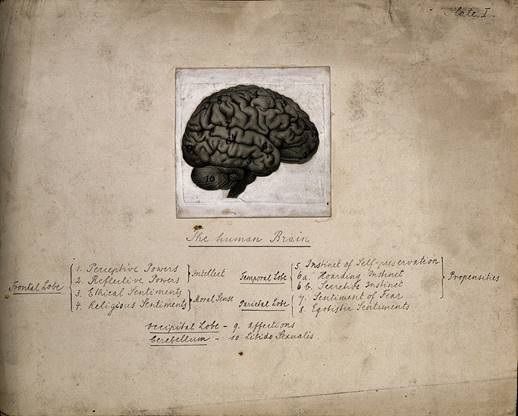 Plate I.
10
The human Brain
Frontal Lobe
1. Perceptive Powers
2. Reflective Powers
3. Ethical Sentiments
4. Religious Sentiments
Intellect
Moral Sense
Temporal Lobe
Parietal Lobe
5. Instinct of Self-preservation
6a. Hoarding Instinct
6b. Secretive Instinct
7. Sentiment of Fear
8. Egotistic Sentiments
Propensities
Occipital Lobe - 9. Affections
Cerebellum - 10. Libido Sexualis.